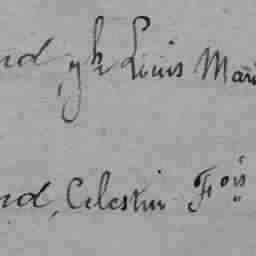 nd, Louis Mari
nd, Celestin Fois